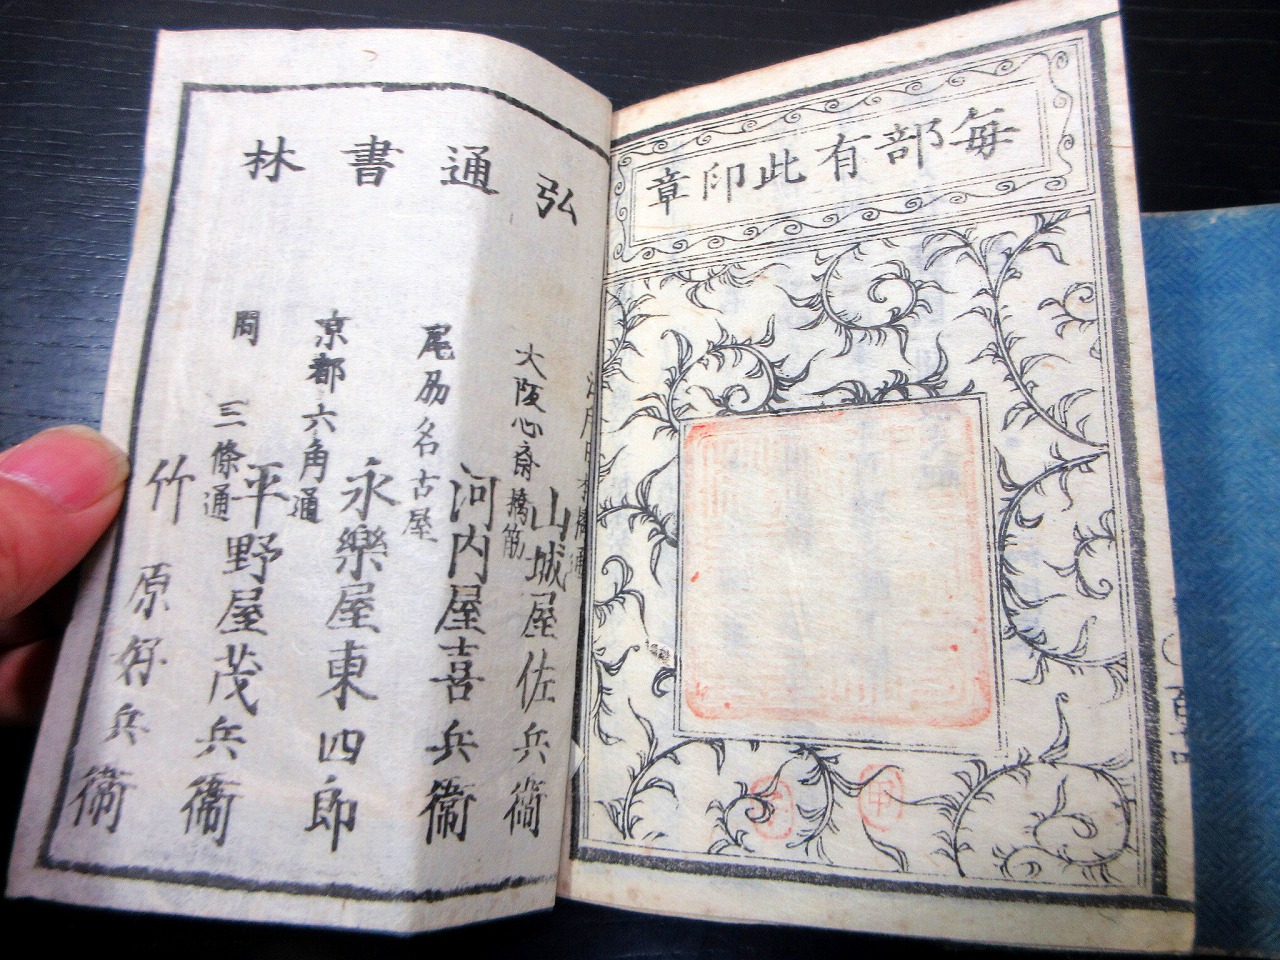 每部有此印章
弘通書林
山城屋佐兵衞
大阪心斎橋筋
河内屋喜兵衞
尾州名古屋
永樂屋東四郎
京都六角通
平野屋茂兵衞
同 三條通
竹原好兵衞